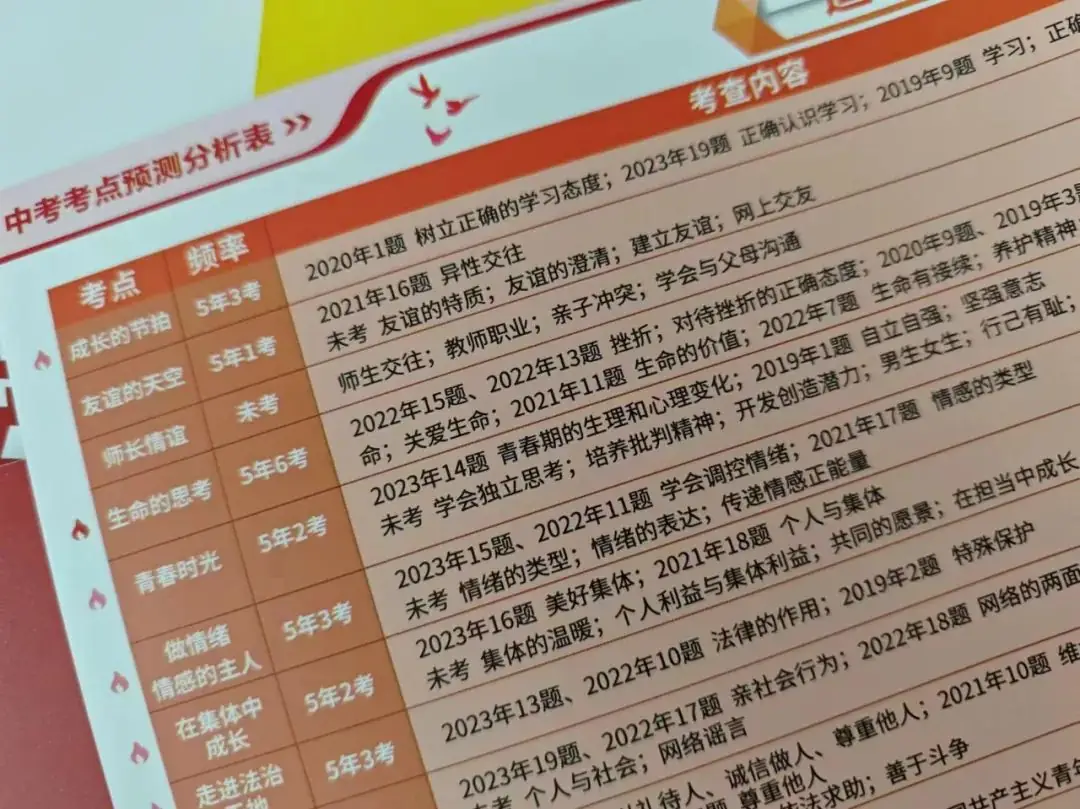 中考考点预测分析表
考点 频率 考查内容
成长的节拍 5年3考 2020年1题 树立正确的学习态度；2023年19题 正确认识学习；2019年9题 学习；正确
友谊的天空 5年1考 2021年16题 异性交往
未考 友谊的特质；友谊的澄清；建立友谊；网上交友
师长情谊 未考 师生交往；教师职业；亲子冲突；学会与父母沟通
生命的思考 5年6考 2022年15题、2022年13题 挫折；对待挫折的正确态度；2020年9题、2019年3题
命；关爱生命；2021年11题 生命的价值；2022年7题 生命有接续；养护精神
青春时光 5年2考 2023年14题 青春期的生理和心理变化；2019年1题 自立自强；坚强意志
未考 学会独立思考；培养批判精神；开发创造潜力；男生女生；行己有耻；
做情绪
情感的主人 5年3考 2023年15题、2022年11题 学会调控情绪；2021年17题 情感的类型
未考 情绪的类型；情绪的表达；传递情感正能量
在集体中
成长 5年2考 2023年16题 美好集体；2021年18题 个人与集体
未考 集体的温暖；个人利益与集体利益；共同的愿景；在担当中成长
走进法治 5年3考 2023年13题、2022年10题 法律的作用；2019年2题 特殊保护
2023年19题、2022年17题 亲社会行为；2022年18题 网络的两面
未考 个人与社会；网络谣言
礼待人、诚信做人、尊重他人；2021年10题 维
题 尊重他人
法求助；善于斗争
共产主义青年